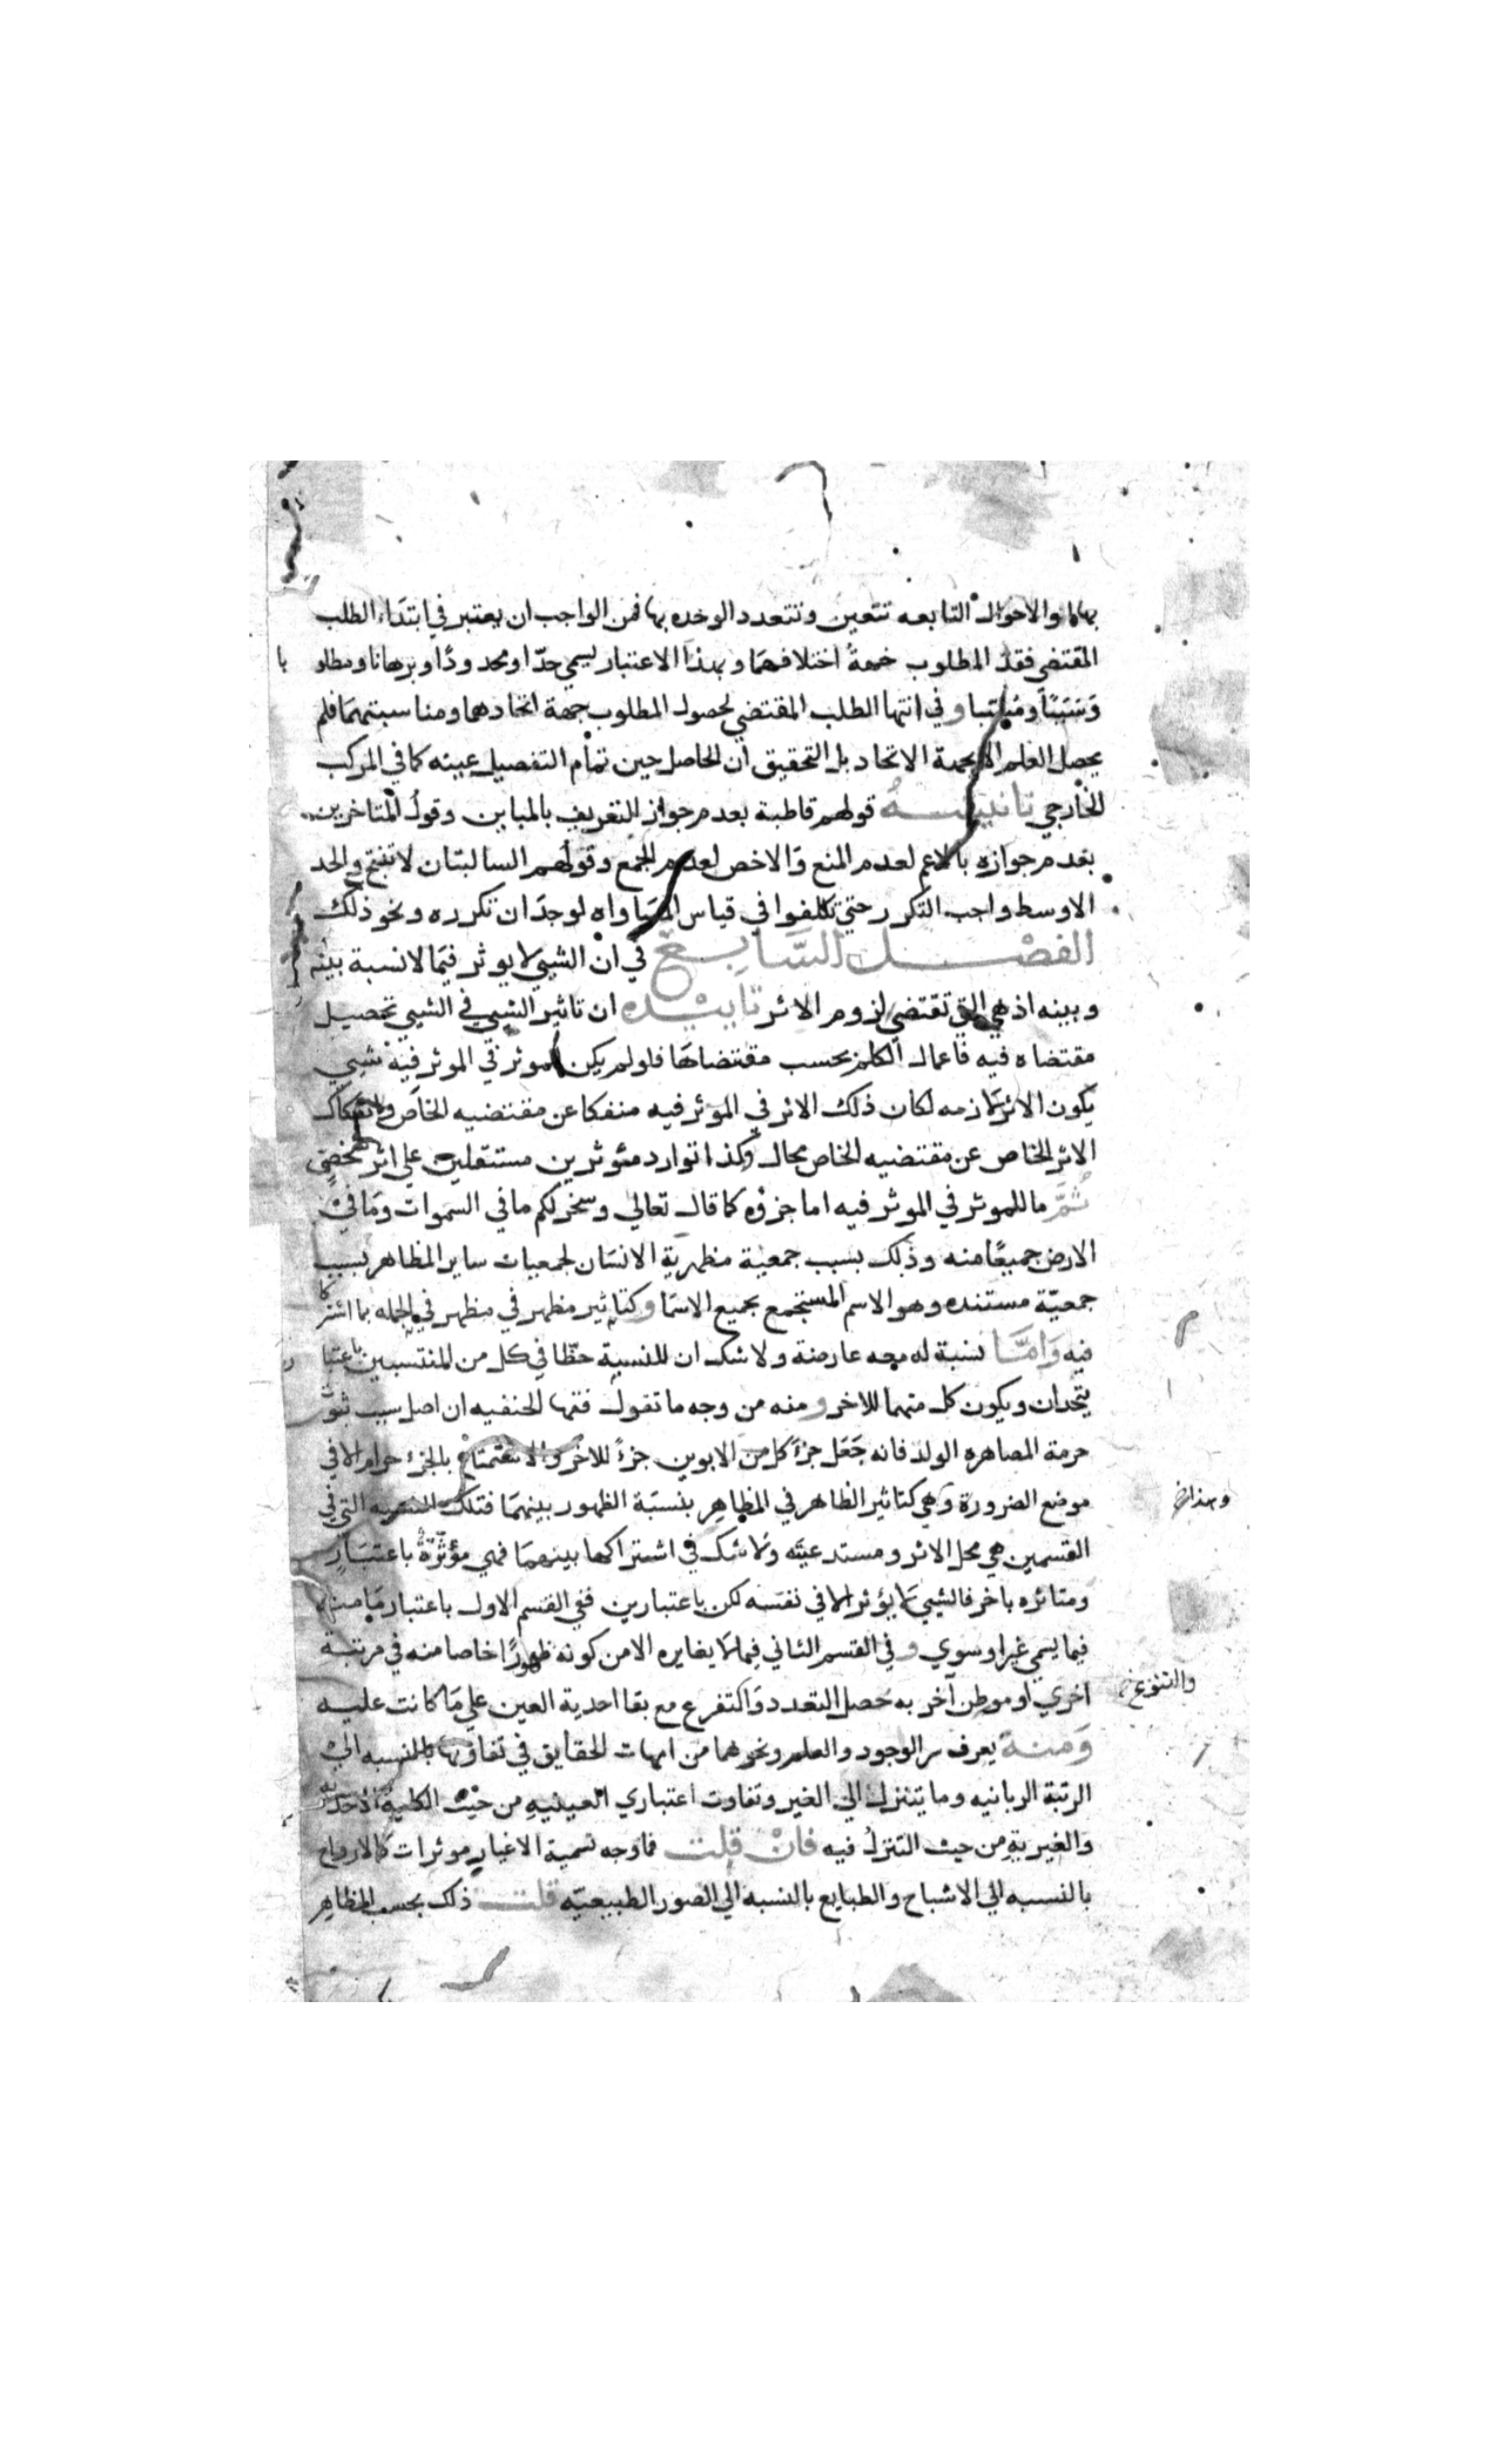 بهما والاحوال التابعه تتعين وتتعدد الوحده بها فمن الواجب ان يعتبر في ابتداء الطلب
المقتضي فقد المطلوب جهة اختلافهما وبهذا الاعتبار يسمي حدّا ومحدودًا وبرهانا ومطلو
با
وسَببًا ومُسَبّبا وفي انتها الطلب المقتضي لحصول المطلوب جهة اتحادهما ومناسبتهما فلم
يحصل العلم الا بجهة الاتحاد بل التحقيق ان الحاصل حين تمام التفصيل عينه كما في المركب
الخارجي تانيسه قولهم قاطبة بعدم جواز التعريف بالمباين وقول المتاخرين
بعدم جوازه بالاعم لعدم المنع والاخص لعدم الجمع وقولهم السالبتان لا تنتج والحد
الاوسط واجب التكرر حتي تكلفوا في قياس المساواه لوجدان تكرره ونحو ذلك
الفصل السابع في ان الشيي لا يوثر فيما لا نسبة بينه
وبينه اذ هي التي تقتضي لزوم الاثر تاييده ان تاثير الشيي في الشيي تحصيل
مقتضاه فيه فاعمال الكلم بحسب مقتضاها فلو لم يكن للموثر في الموثر فيه شيي
يكون الاثر لازمه لكان ذلك الاثر في الموثر فيه منفكا عن مقتضيه الخاص وانفكاك
الاثر الخاص عن مقتضيه الخاص محال وكذا توارد مئوثرين مستقلين علي اثر شخصي
ثُمَّ ما للموثر في الموثر فيه اما جزؤه كما قال تعالي وسخر لكم ما في السموات وما في
الارض جميعًا منه وذلك بسبب جمعية مظهرية الانسان لجمعيات ساير المظاهر بسبب
جمعيّة مستنده وهو الاسم المستجمع بجميع الاسما وكتاثير مظهر في مظهر في الجمله بما اشتركا
فيه وَامَّا نسبة له معه عارضة ولا شك ان للنسبة حظّا في كل من المنتسبين باعتبا
ر
يتحدان ويكون كل منهما للاخر ومنه من وجه ما تقول فقها الحنفيه ان اصل سبب ثبوت
حرمة المصاهره الولد فانه جَعَل جزءَ كل من الابوين جزءً للاخر والاستمتاع بالجزء حرام الا في
موضع الضرورة وهي كتاثير الظاهر في المظاهر بنسبَة الظهور بينهما فتلك النسبه التي في
القسمين هي محل الاثر ومستدعيَته ولا شك في اشتراكها بينهما فهي مؤثّرةٌ باعتبار
ومتاثره باخر فالشيي لا يؤثر الا في نفسه لكن باعتبارين ففي القسم الاول باعتبار ما منه
فيما يسمي غيرا وسوي وفي القسم الثاني فيما لا يغايره الا من كونه ظهورًا خاصا منه في مرتبة
اخري او موطن آخر به حصل التعدد والتفرع مع بقا احدية العين علي ما كانت عليه
والتنوع
وَمنه يعرف سر الوجود والعلم ونحوهما من امهات الحقايق في تفاوتها بالنسبه الي
الرتبة الربانيه وما يتنزل الي الغير وتفاوت اعتباري العينيةِ من حيث الكلية
والغيريةِ من حيث التنزل فيه فان قلت فما وجه تسمية الاغيار موثرات كالارواح
بالنسبه الي الاشباح والطبايع بالنسبه الي الصور الطبيعيّه قلت ذلك بحسب المظاهر